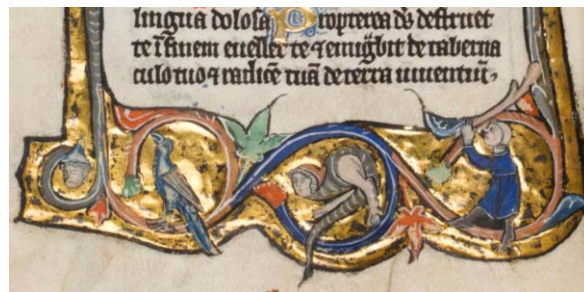 lingua dolosa Propterea d̄s destruet
te ī finem euellet te ⁊ emig̃bit de taberna
culo tuo ⁊ radicē tuā de terra uiuentiū.